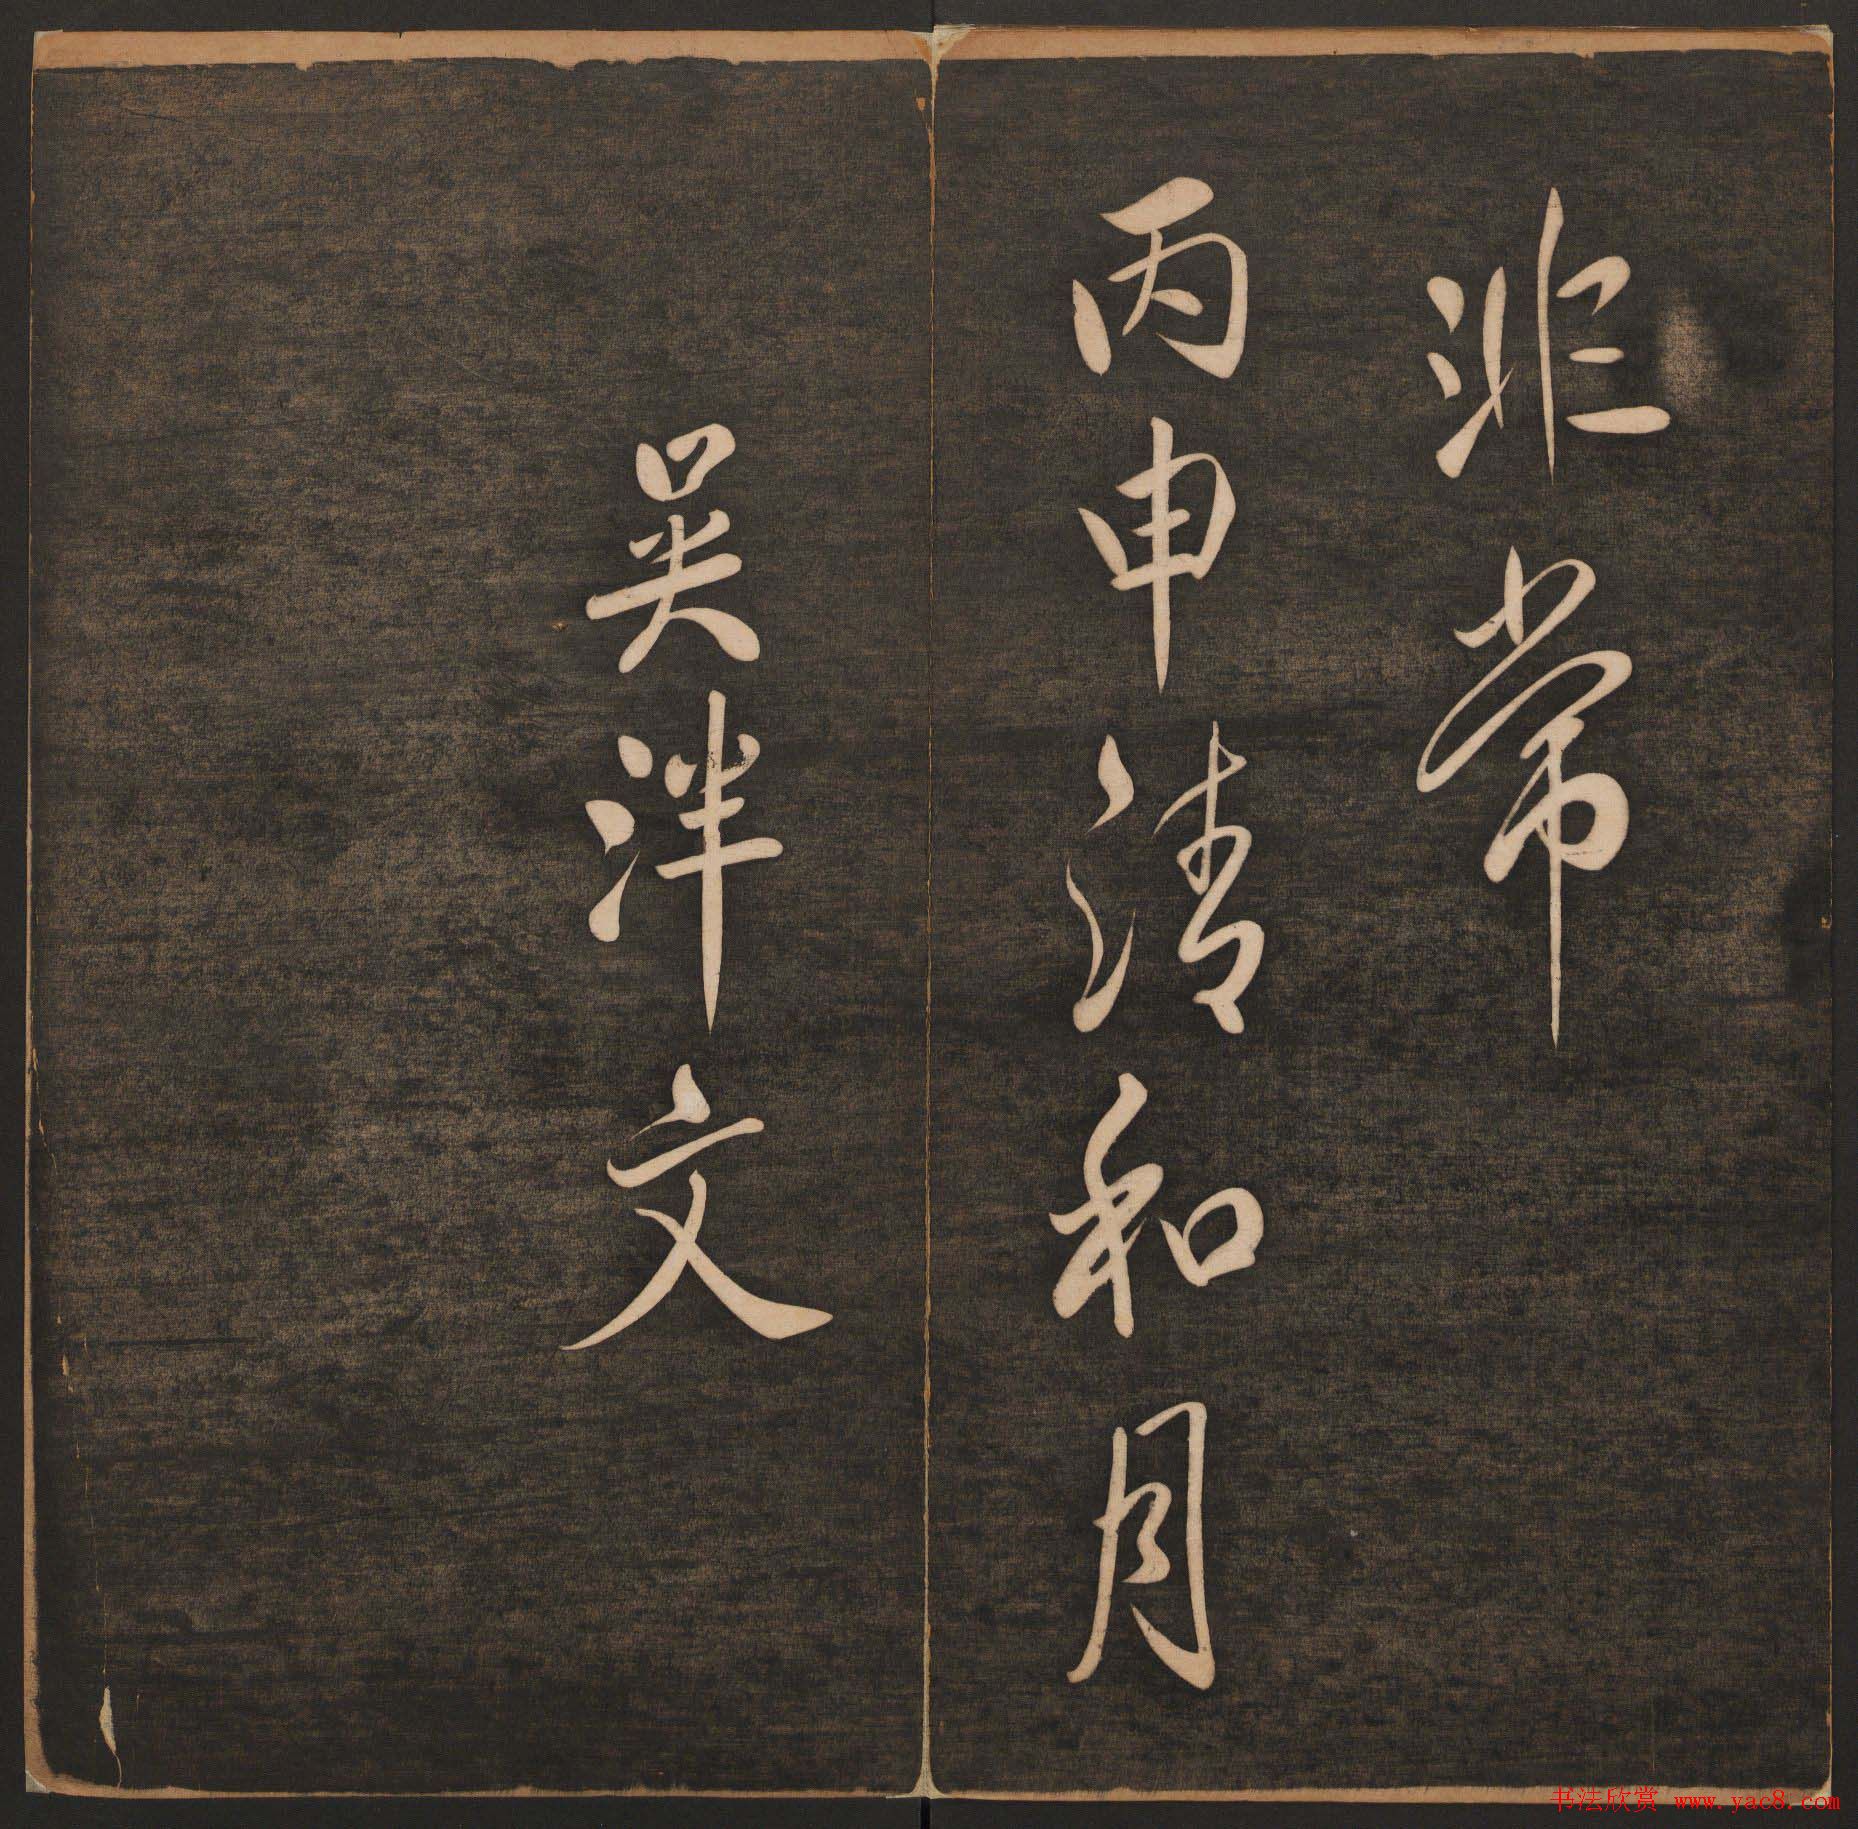 非常
丙申清和月
吴泮文
书法欣赏 www.yac8.com